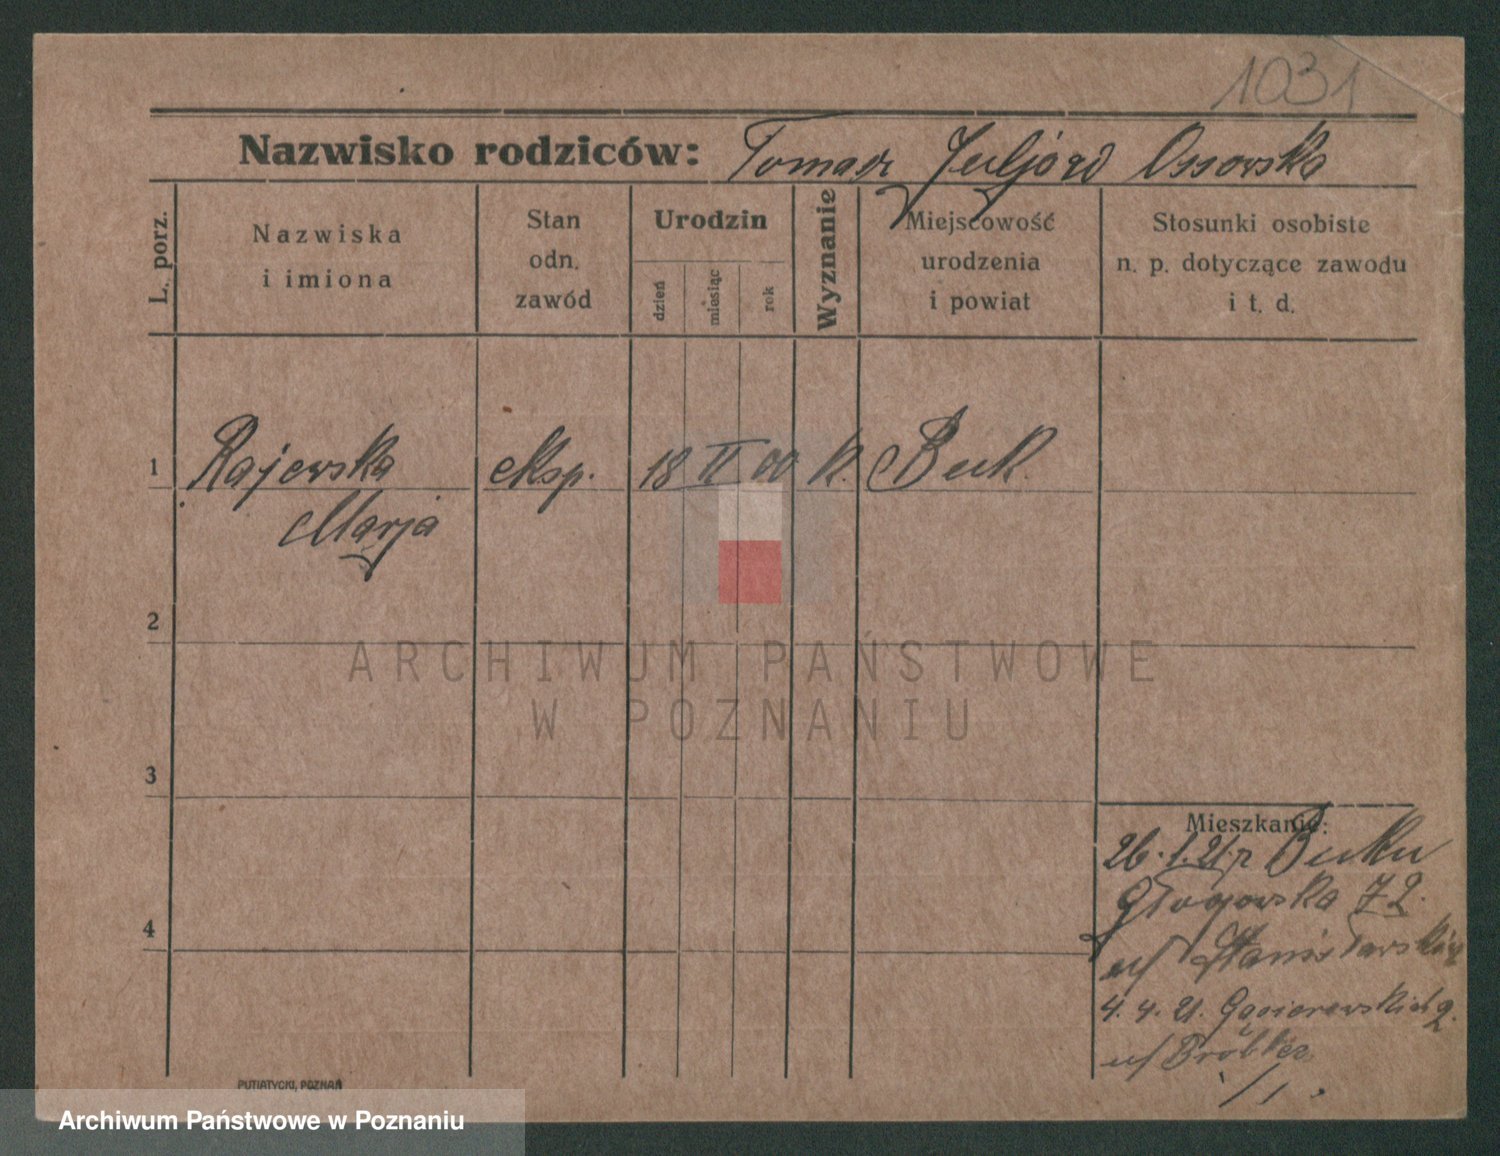 1031
Nazwisko rodziców: Tomasz Ossowska
L. porz.
Nazwiska
i imiona
Stan
odn.
zawód
Urodzin
dzień
miesiąc
rok
Wyznanie
Miejscowość
urodzenia
i powiat
Stosunki osobiste
n. p. dotyczące zawodu
i t. d.
1 Rajewska eksp. 18 II 00 k. Buk
Marja
2
3
4
ARCHIWUM PAŃSTWOWE
W POZNANIU
Mieszkanie:
26. 1. 21. z Buku
Głogowska 72.
u/ Stanisławskiej
4. 4. 21. Gąsiorowskich 2.
u/
PUTIATYCKI, POZNAŃ
Archiwum Państwowe w Poznaniu